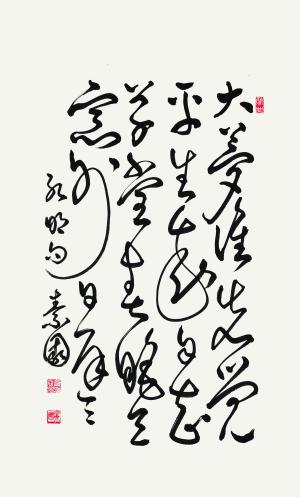 大夢誰先覺
平生我自知
草堂春睡足
窗外日遲々
孔明句
素